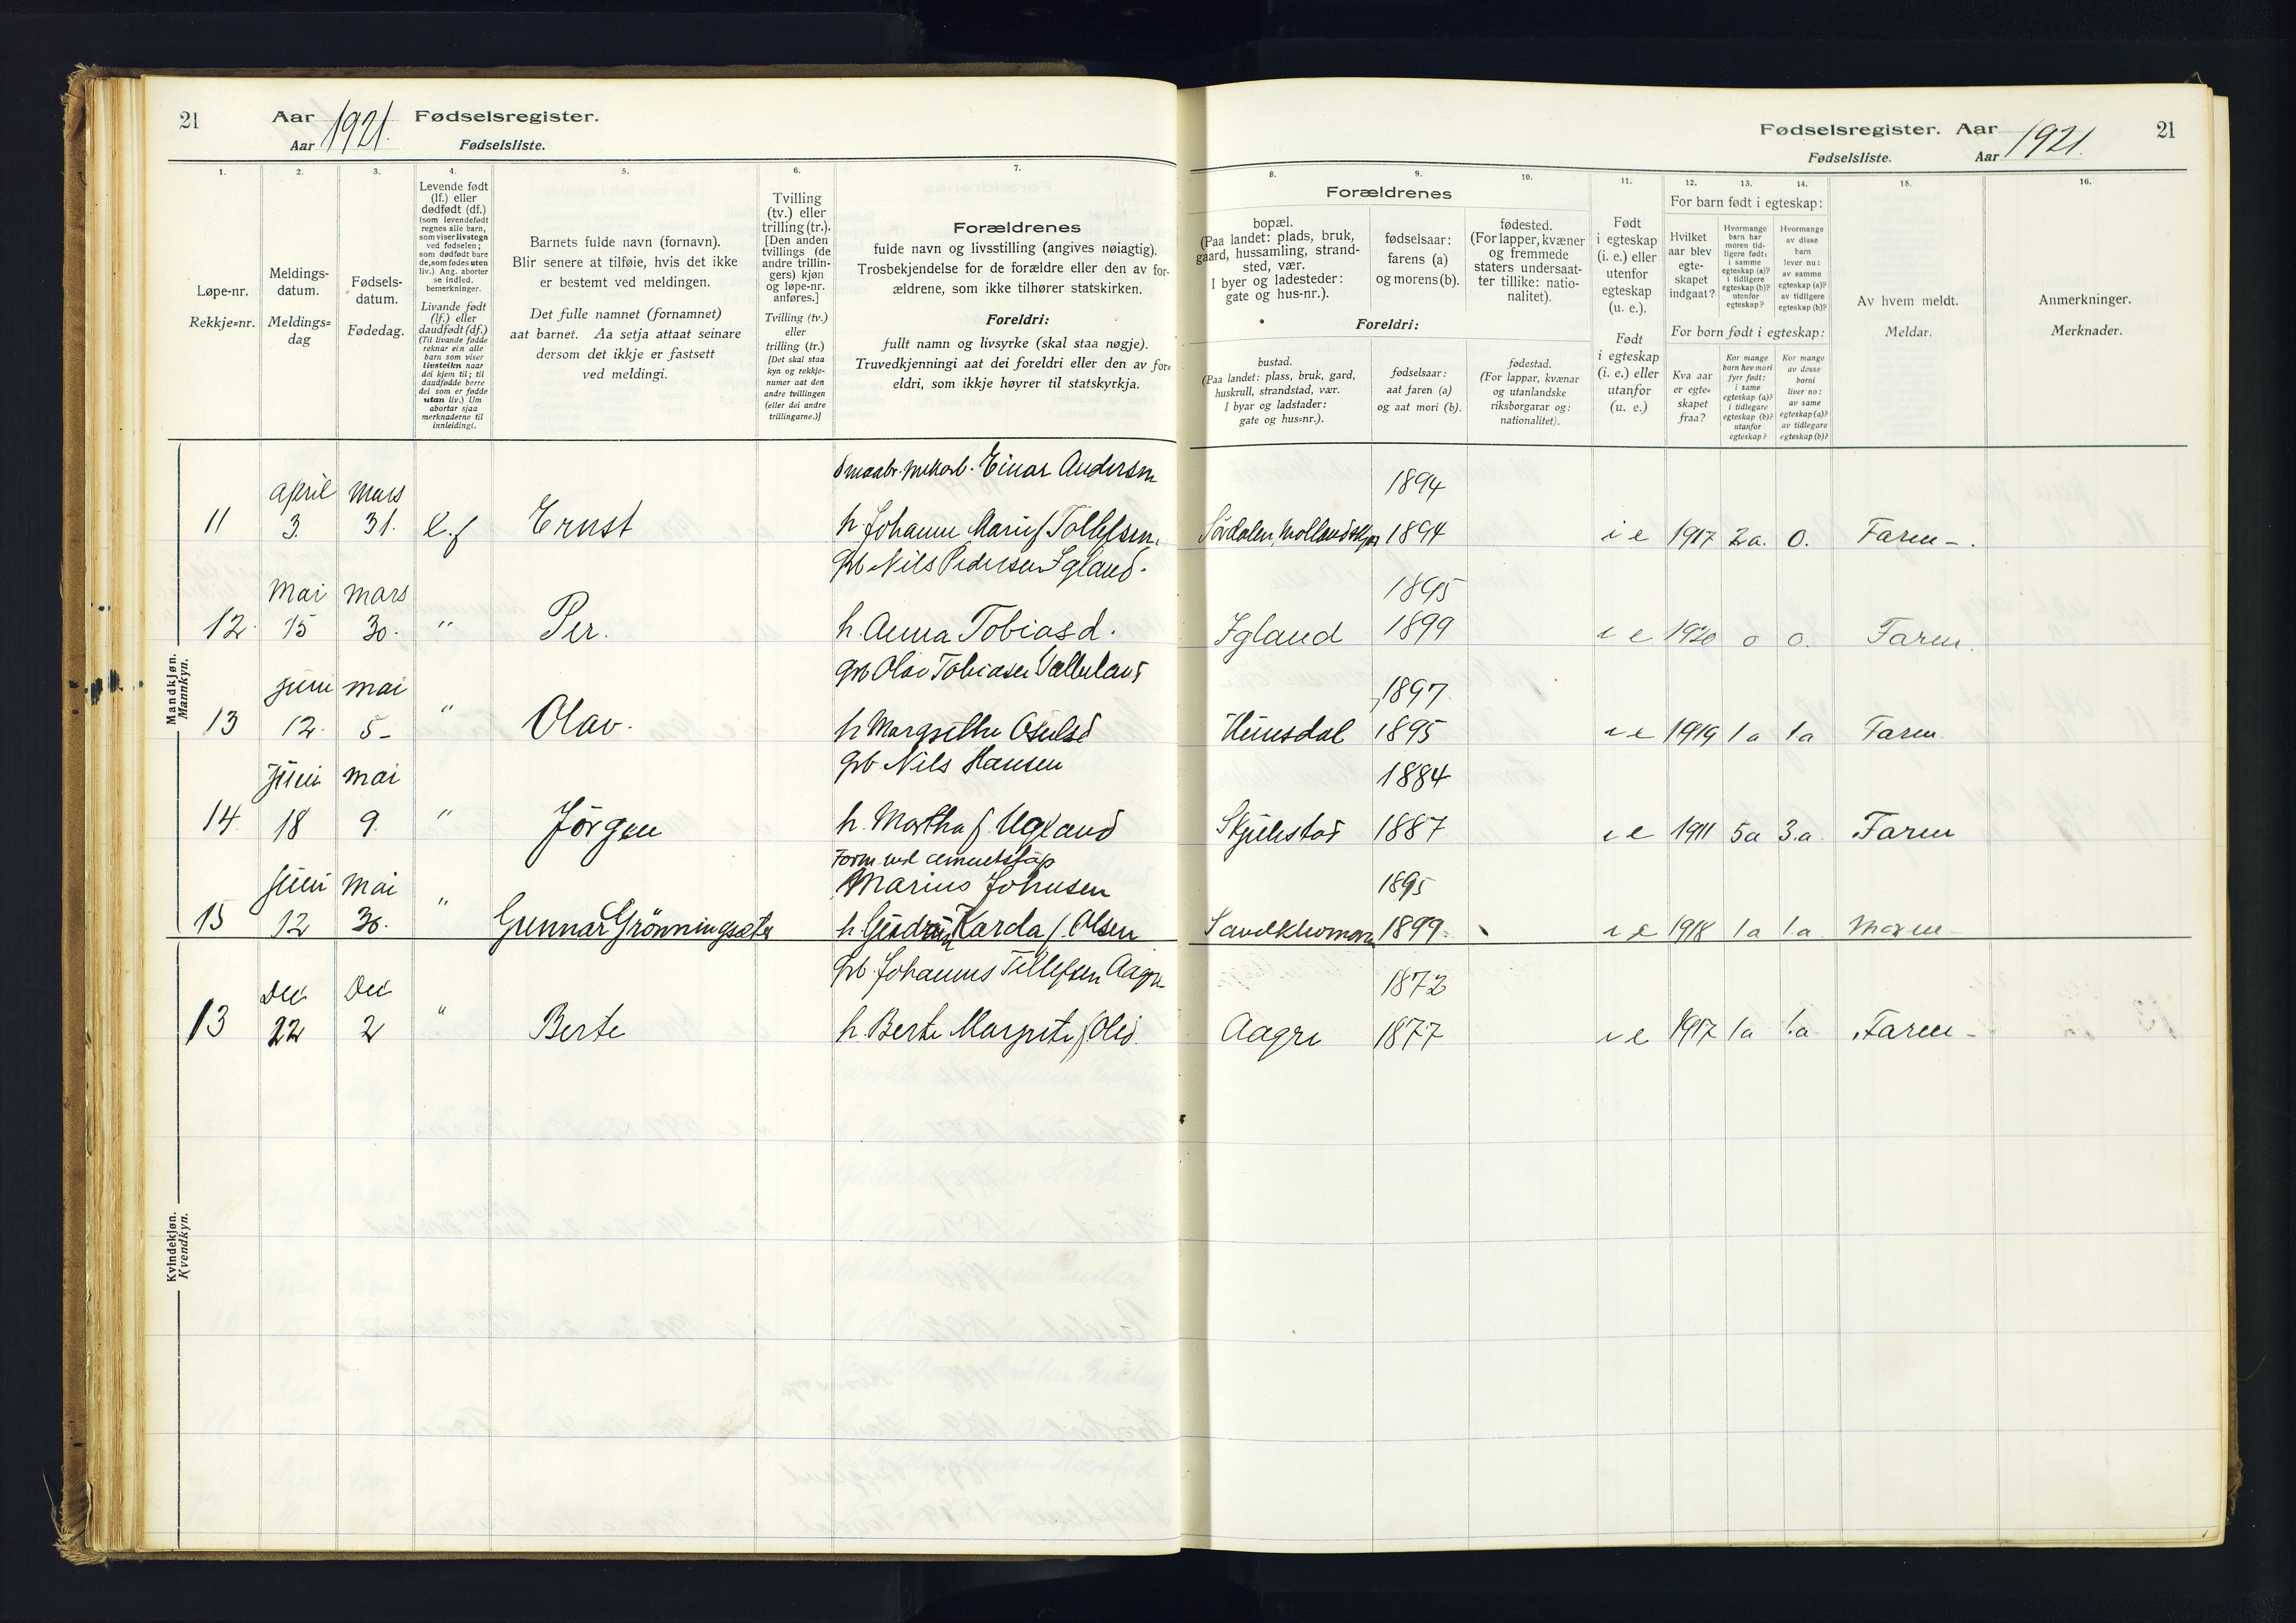 21
Aar 1921. Fødselsregister.
Aar Fødselsliste.
Fødselsregister. Aar 1921.
Fødselsliste. Aar
21
1. 2. 3. 4. 5. 6. 7. 8. 9. 10. 11. 12. 13. 14. 15. 16.
Løpe-nr.
Rekkje=nr.
Meldings-
datum.
Meldings=
dag
Fødsels-
datum.
Fødedag.
Levende født
(lf.) eller
dødfødt (df.)
(som levendefødt
regnes alle barn,
som viser livstegn
ved fødselen;
som dødfødt bare
de, som fødes uten
liv.) Ang. aborter
se indled.
bemerkninger.
Livande født
(lf.) eller
daudfødt (df.)
(Til livande fødde
reknar ein alle
barn som viser
livsteikn naar
dei kjem til; til
daudfødde berre
dei som er fødde
utan liv.) Um
abortar sjaa
merknaderne til
innleidingi.
Barnets fulde navn (fornavn).
Blir senere at tilføie, hvis det ikke
er bestemt ved meldingen.
Det fulle namnet (fornamnet)
aat barnet. Aa setja attaat seinare
dersom det ikkje er fastsett
ved meldingi.
Tvilling
(tv.) eller
trilling (tr.).
[Den anden
tvillings (de
andre trillin-
gers) kjøn
og løpe-nr.
anføres.]
Tvilling (tv.)
eller
trilling (tr.)
[Det skal staa
kyn og rekkje-
numer aat den
andre tvillingen
(eller dei andre
trillingarne.)]
Forældrenes
fulde navn og livsstilling (angives nøiagtig).
Trosbekjendelse for de forældre eller den av for-
ældrene, som ikke tilhører statskirken.
Foreldri:
fullt namn og livsyrke (skal staa nøgje).
Truvedkjenningi aat dei foreldri eller den av for=
eldri, som ikkje høyrer til statskyrkja.
Forældrenes
bopæl.
(Paa landet: plads, bruk,
gaard, hussamling, strand-
sted, vær.
I byer og ladesteder:
gate og hus-nr.).
fødselsaar:
farens (a)
og morens (b).
fødested.
(For lapper, kvæner
og fremmede
staters undersaat-
ter tillike: natio-
nalitet).
Foreldri:
bustad.
(Paa landet: plass, bruk, gard,
huskrull, strandstad, vær.
I byar og ladstader:
gate og hus=nr.).
fødselsaar:
aat faren (a)
og aat mori (b).
fødestad.
(For lappar, kvænar
og utanlandske
riksborgarar og:
nationalitet).
Født
i egteskap
(i. e.) eller
utenfor
egteskap
(u. e.).
Født
i egteskap
(i. e.) eller
utanfor
(u. e.)
For barn født i egteskap:
Hvilket
aar blev
egte-
skapet
indgaat?
Hvormange
barn har
moren tid-
ligere født:
i samme
egteskap (a)?
i tidligere
egteskap (b)?
utenfor
egteskap?
Hvormange
av disse
barn
lever nu:
av samme
egteskap (a)?
av tidligere
egteskap (b)?
For born født i egteskap:
Kva aar
er egte-
skapet
fraa?
Kor mange
born hev mori
fyrr født:
i same
egteskap (a)?
i tidlegare
egteskap (b)?
utanfor
egteskap?
Kor mange
av desse
borni
liver no:
av same
egteskap (a)?
av tidlegare
egteskap (b)?
Av hvem meldt.
Meldar.
Anmerkninger.
Merknader.
Mandkjøn.
Mannkyn.
Einar Andersen 1894
11 april 3. Mars 31. L.f Ernst h. Johanne Marie f Tollefsen. 1894 i e 1917 2a. 0. Faren -.
Nils Pedersen Igland. 1895
12. Mai 15 mars 30. " Per. h. Anna Tobiasd. Igland 1899 i e 1920 0 0. Faren.
gb Olav Tobiasen 1897
13 juni 12. mai 5- " Olav. h Margrethe 1895 i e 1919 1a 1a Faren
gb Nils Hansen 1884
14 Juni 18 mai 9. " Jörgen h. Martha f. Ugland 1887 i e 1911 5a 3.a Faren
Marius Johnsen 1895
15 juni 12 Mai 30. " Gunnar Grönningsæter h. Gudrun Karda f. Olsen 1899 i e 1918 1a 1.a
Kvindekjøn.
Kvendkyn.
gb. Johannes Tellefsen Aagre 1872
13 Dec 22 Dec 2 " Berte h. Berte Margrete f Olsd. Aagre 1877 i e 1917 1a 1.a Faren -